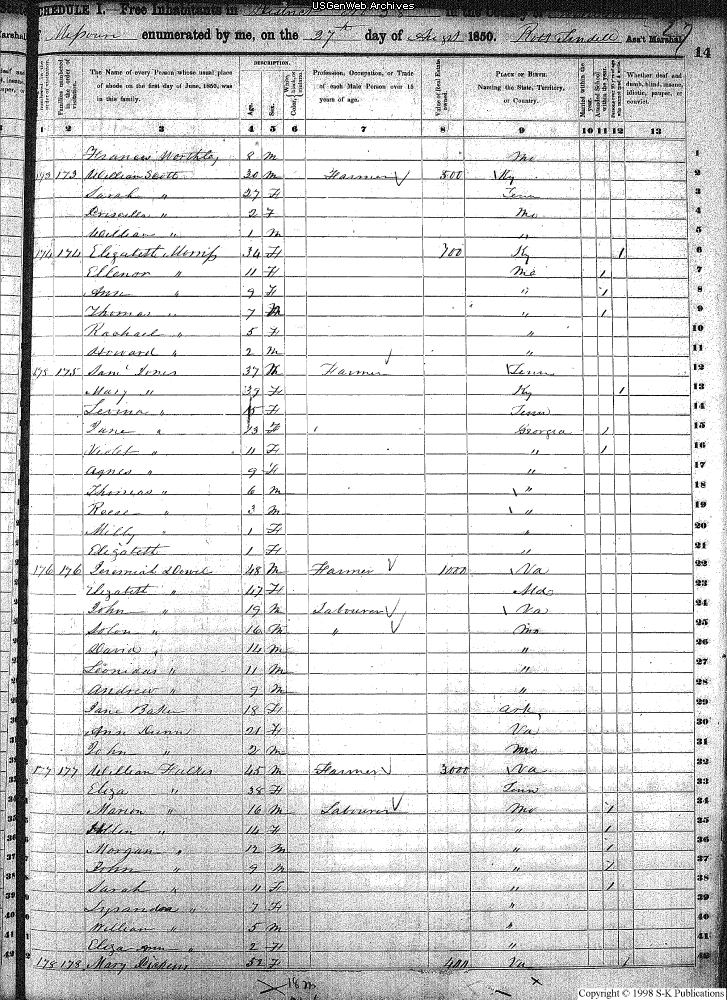 USGenWeb Archives
SCHEDULE I.—Free Inhabitants in
Missouri enumerated by me, on the 27th day of August 1850. Ass't Marshal
27
14
DESCRIPTION.
The Name of every Person whose usual place of abode on the first day of June, 1850, was in this family.
Age.
Sex.
Profession, Occupation, or Trade of each Male Person over 15 years of age.
Value of Real Estate owned.
PLACE OF BIRTH. Naming the State, Territory, or Country.
Married within the year.
Whether deaf and dumb, blind, insane, idiotic, pauper, or convict.
1 2 3 4 5 6 7 8 9 10 11 12 13
Francis Worthley 8 M Mo 1
173 William Scott 30 M Farmer 500 Ky 2
Sarah " 27 F Tenn 3
Driscilla " 2 F Mo 4
William " 1 M " 5
174 174 Elizabeth Morris 34 F 700 Ky 1 6
Ellenor " 11 F Mo 1 7
Ann " 9 F " 1 8
Thomas " 7 M " 1 9
Rachael " 5 F " 10
Howard " 2 M " 11
175 175 Saml Jones 37 M Farmer Tenn 12
Mary " 39 F Ky 1 13
Levina " 15 F Tenn 14
Jane " 13 F Georgia 1 15
Violet " 11 F " 1 16
Agnes " 9 F " 17
Thomas " 6 M " 18
Reese " 3 M " 19
Milly " 1 F " 20
Elizabeth 1 F " 21
176 176 Jeremiah 48 M Farmer 1000 Va 22
Elizabeth " 47 F Md 23
John " 19 M Labourer Va 24
Solon " 16 M " Mo 25
David " 14 M " 26
Leonidas " 11 M " 27
Andrew " 9 M " 28
Jane Baker 18 F Ark 29
Ann Dunn 21 F Va 30
John " 2 M Mo 31
177 William 45 M Farmer 3000 Va 32
Eliza " 38 F Tenn 33
Marion " 16 M Labourer Mo 1 34
Hellen " 14 F " 1 35
Morgan " 12 M " 1 36
John " 9 M " 1 37
Sarah " 11 F " 1 38
Lysandra " 7 F " 39
William " 5 M " 40
Eliza Ann " 2 F " 41
178 178 Mary Dickens 52 F 400 Va 1 42
18 m
Copyright © 1998 S-K Publications